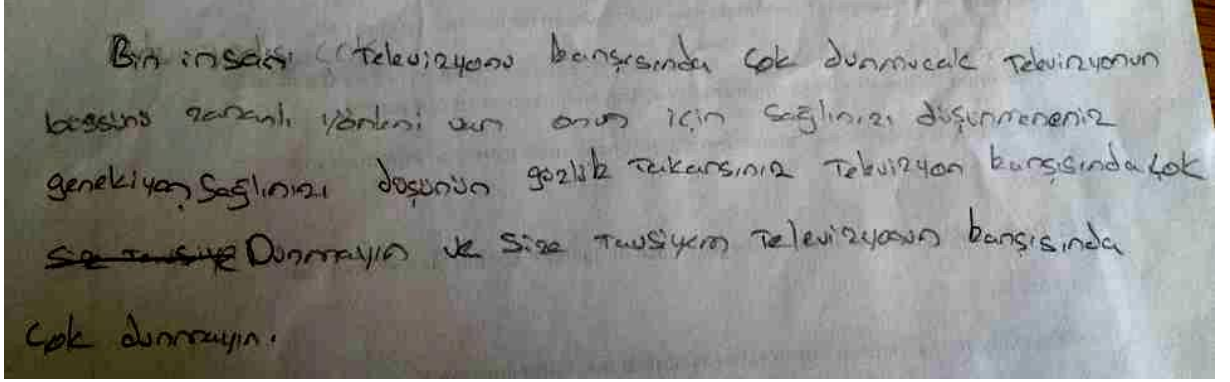 Bir insan televizyonu karşısında çok durmucak Televizyonun
bassına zararlı yönleni var onun için Sağlınızı düşünmeneniz
genekiyor Sağlınızı düşünün gözlük Takarsınız Televizyon karşısında çok
Durmayın ve Size Tavsiyem Televizyonun karşısında
Çok durmayın.